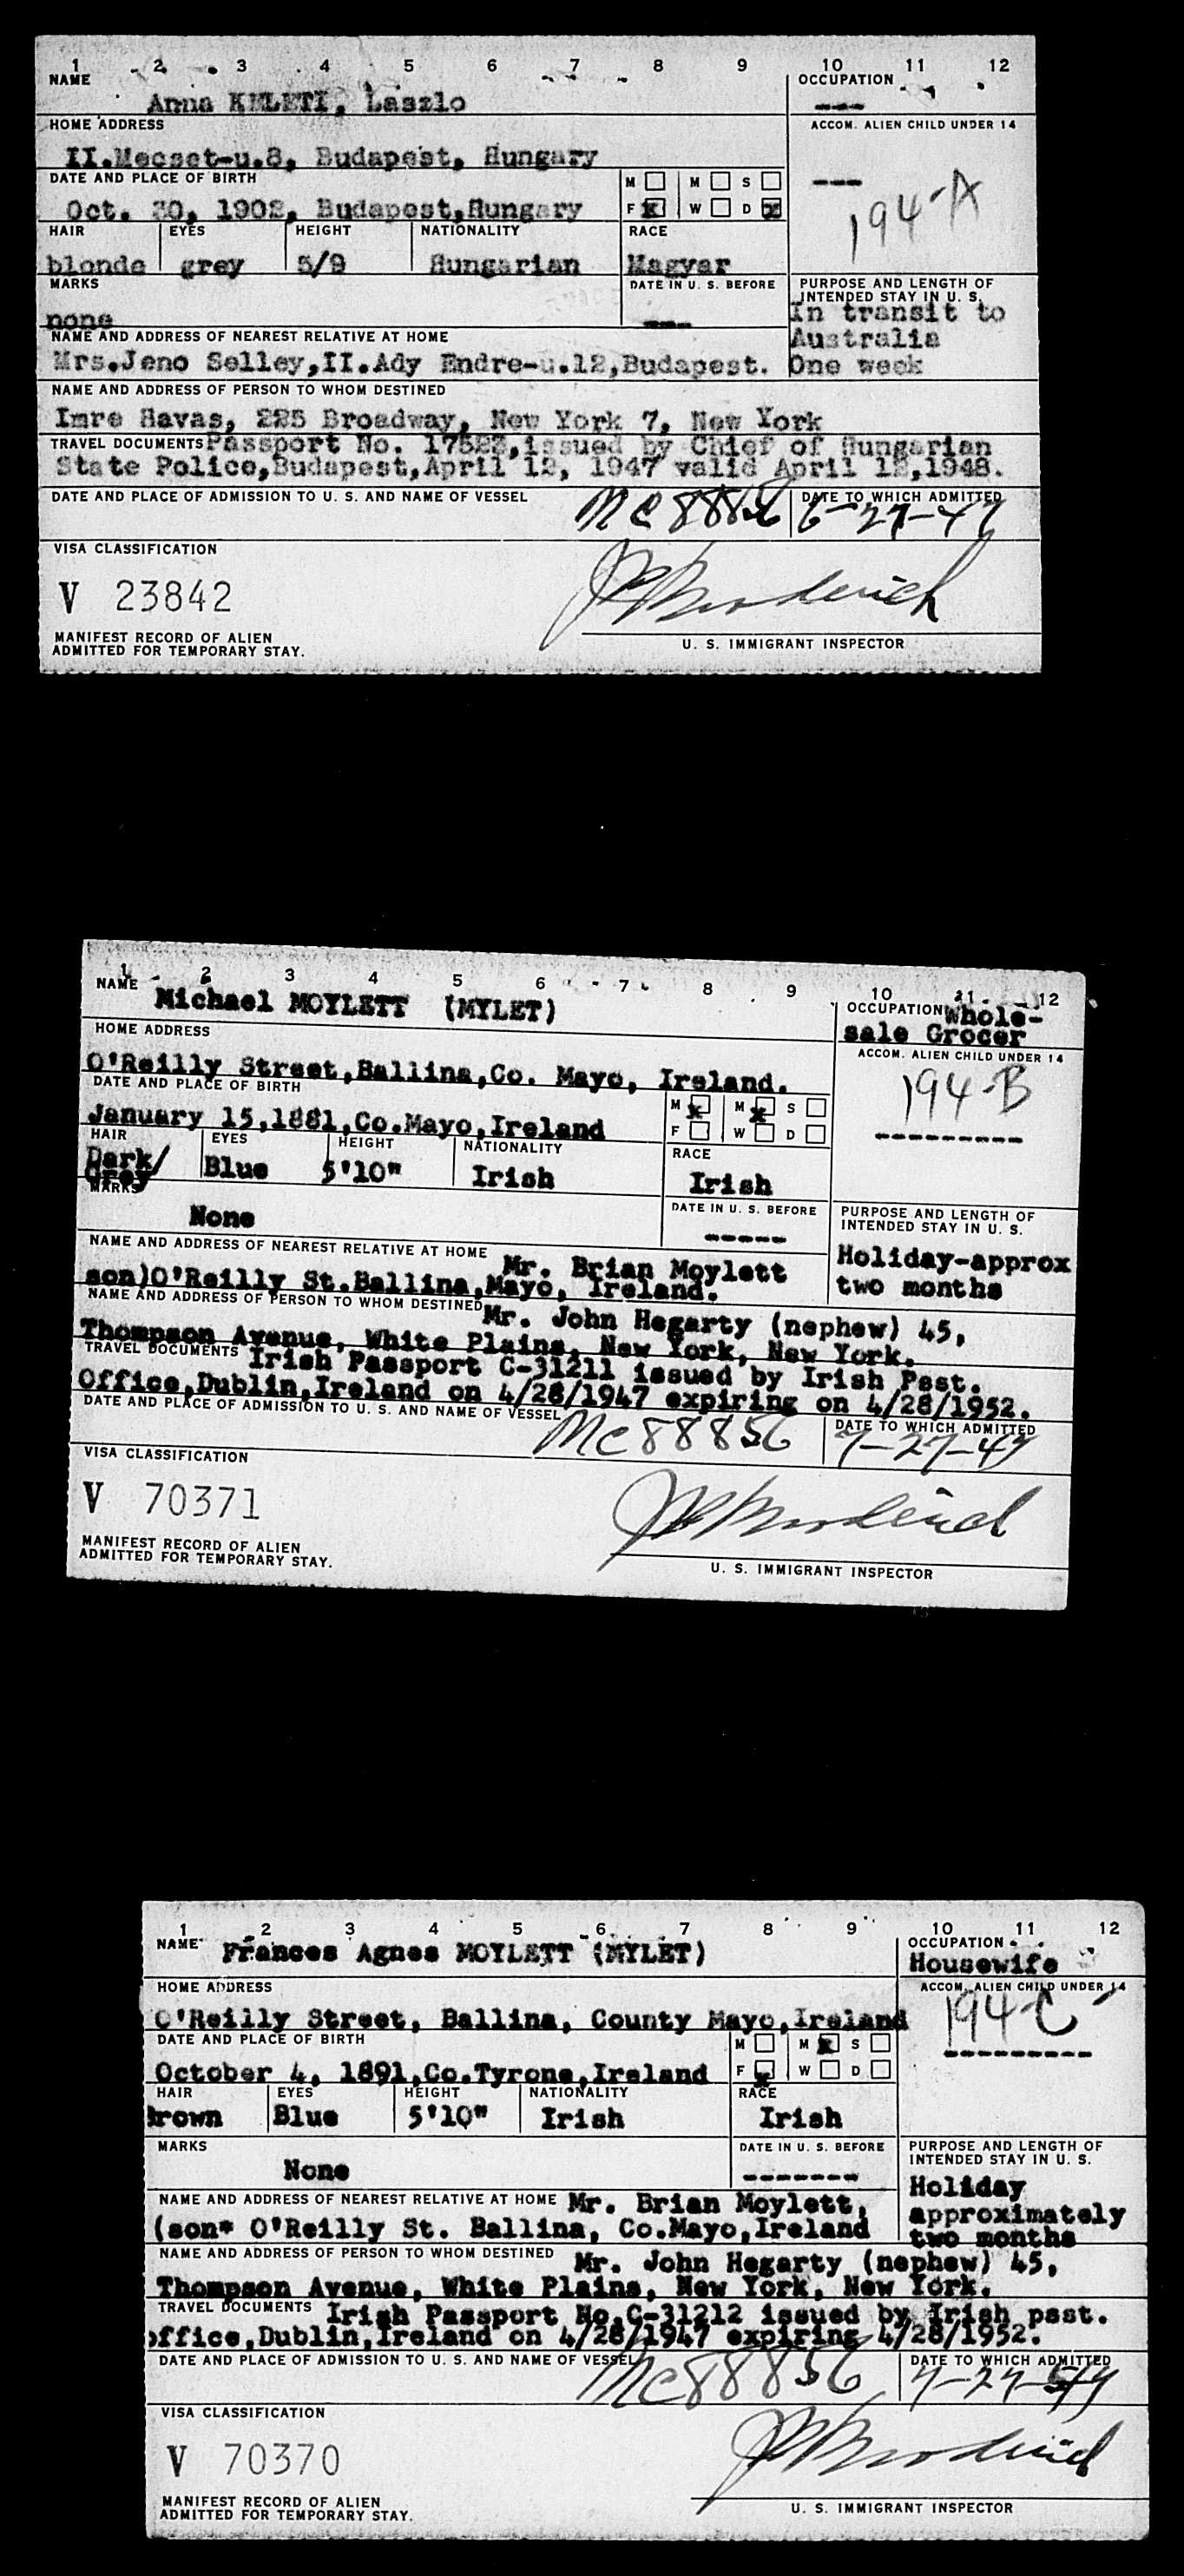 1 2 3 4 5 6 7 8 9 10 11 12
NAME
Anna KELETI, Laszlo
OCCUPATION
---
HOME ADDRESS
II.Mecset-u.8, Budapest, Hungary
ACCOM. ALIEN CHILD UNDER 14
---
194-A
DATE AND PLACE OF BIRTH
Oct. 30, 1902, Budapest,Hungary
M M S
F x W D x
HAIR EYES HEIGHT NATIONALITY RACE
blonde grey 5/9 Hungarian Magyar
MARKS
none
DATE IN U. S. BEFORE
---
PURPOSE AND LENGTH OF
INTENDED STAY IN U. S.
In transit to
Australia
One week
NAME AND ADDRESS OF NEAREST RELATIVE AT HOME
Mrs.Jeno Selley,II.Ady Endre-u.12,Budapest.
NAME AND ADDRESS OF PERSON TO WHOM DESTINED
Imre Havas, 225 Broadway, New York 7, New York
TRAVEL DOCUMENTS Passport No. issued by Chief of Hungarian
State Police,Budapest,April 12, 1947 valid April 12,1948.
DATE AND PLACE OF ADMISSION TO U. S. AND NAME OF VESSEL
NC 88856
DATE TO WHICH ADMITTED
6-27-47
VISA CLASSIFICATION
V 23842
MANIFEST RECORD OF ALIEN
ADMITTED FOR TEMPORARY STAY.
U. S. IMMIGRANT INSPECTOR
1 2 3 4 5 6 7 8 9 10 11 12
NAME Michael MOYLETT (MYLET)
OCCUPATION Whole-
sale Grocer
HOME ADDRESS
O'Reilly Street,Ballina,Co. Mayo, Ireland.
ACCOM. ALIEN CHILD UNDER 14
194-B
---------
DATE AND PLACE OF BIRTH
January 15,1881,Co.Mayo,Ireland
M x M x S
F W D
HAIR EYES HEIGHT NATIONALITY RACE
Dark/
Grey Blue 5'10" Irish Irish
MARKS
None
DATE IN U. S. BEFORE
-----
PURPOSE AND LENGTH OF
INTENDED STAY IN U. S.
Holiday-approx
two months
NAME AND ADDRESS OF NEAREST RELATIVE AT HOME Mr. Brian Moylett
son)O'Reilly St.Ballina,Mayo, Ireland.
NAME AND ADDRESS OF PERSON TO WHOM DESTINED Mr. John Hegarty (nephew) 45,
Thompson Avenue, White Plains, New York, New York.
TRAVEL DOCUMENTS Irish Passport C-31211 issued by Irish Psst.
Office,Dublin,Ireland on 4/28/1947 expiring on 4/28/1952.
DATE AND PLACE OF ADMISSION TO U. S. AND NAME OF VESSEL
NC 88856
DATE TO WHICH ADMITTED
7-27-47
VISA CLASSIFICATION
V 70371
MANIFEST RECORD OF ALIEN
ADMITTED FOR TEMPORARY STAY.
U. S. IMMIGRANT INSPECTOR
1 2 3 4 5 6 7 8 9 10 11 12
NAME Frances Agnes MOYLETT (MYLET)
OCCUPATION
Housewife
HOME ADDRESS
O'Reilly Street, Ballina, County Mayo,Ireland
ACCOM. ALIEN CHILD UNDER 14
194-C
---------
DATE AND PLACE OF BIRTH
October 4, 1891,Co.Tyrone,Ireland
M M x S
F x W D
HAIR EYES HEIGHT NATIONALITY RACE
brown Blue 5'10" Irish Irish
MARKS
None
DATE IN U. S. BEFORE
-------
PURPOSE AND LENGTH OF
INTENDED STAY IN U. S.
Holiday
approximately
two months
NAME AND ADDRESS OF NEAREST RELATIVE AT HOME Mr. Brian Moylett,
(son* O'Reilly St. Ballina, Co.Mayo,Ireland
NAME AND ADDRESS OF PERSON TO WHOM DESTINED Mr. John Hegarty (nephew) 45,
Thompson Avenue, White Plains, New York, New York.
TRAVEL DOCUMENTS Irish Passport No.C-31212 issued by Irish psst.
office,Dublin,Ireland on 4/28/1947 expiring 4/28/1952.
DATE AND PLACE OF ADMISSION TO U. S. AND NAME OF VESSEL
NC 88856
DATE TO WHICH ADMITTED
7-27-47
VISA CLASSIFICATION
V 70370
MANIFEST RECORD OF ALIEN
ADMITTED FOR TEMPORARY STAY.
U. S. IMMIGRANT INSPECTOR